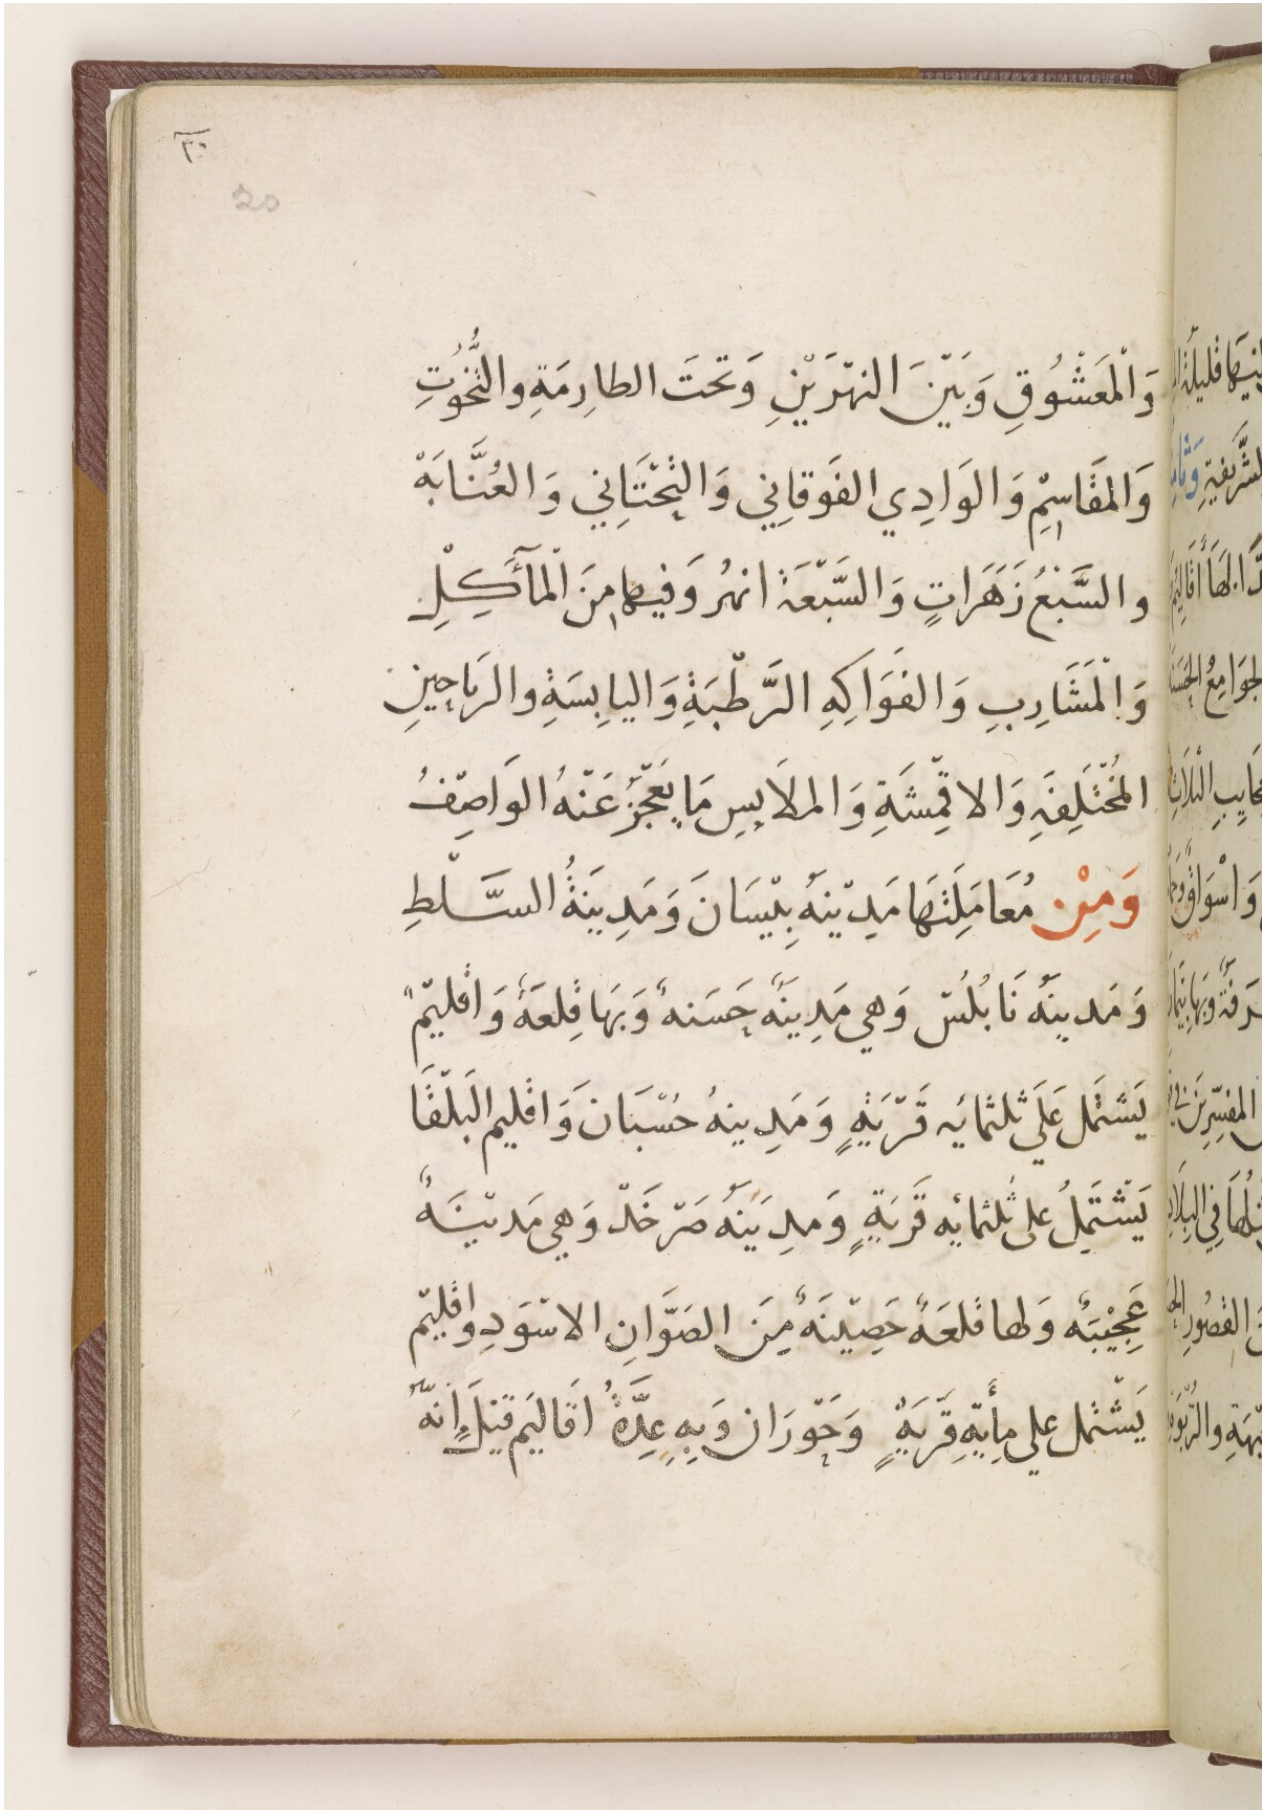 ٢٠
20
وَالْمَعْشُوقِ وَبَيْنَ النهْرَيْنِ وَتحتَ الطارِمَةِ والتُّخُوتِ
وَالمَقَاسِمْ وَالوَادِي الفَوقانِي وَالتِحْتَانِي وَالعُنَّابَهْ
والسَّبْعُ زَهَرَاتٍ وَالسَّبْعَة انهُر وَفيها مِنَ الْمآكِلِ
وَالْمَشَارِبِ وَالفَوَاكِهِ الرَّطْبَةِ وَاليابِسَةِ والرَياحِينِ
المُخْتَلِفَهِ وَالاقْمِشَةِ وَالملَابِسِ مَا يَعْجَزُ عَنْهُ الوَاصِفُ
وَمِنْ مُعَامَلَتهَا مَدِيْنهُ بِيْسَانَ وَمَدِينَةُ السَّلْطِ
وَمَدينهُ نَابُلُسْ وَهي مَدِينَهٌ حَسَنهٌ وَبَهَا قِلعَهٌ وَاقليْمٌ
يَشتَمل عَلَي ثلثمائه قَرْيَةٍ وَمَدِينهُ حُسْبَانَ وَاقليم البَلْقَا
يَشْتَمِلُ على ثلثمائه قَريَةٍ وَمدِيَنهُ صَرْخَدْ وَهي مَديْنَهٌ
عَجِيْبَهٌ وَلها قلعَهٌ حَصِيْنَهٌ مِنَ الصَوَّانِ الاسْوَدِ واقليْم
يَشْتمل علي مِأيَةِ قَرْيَةٍ وَحَوْرَان وَبِهِ عِدَّةُ اقَاليَم قيْلَ إنهّ